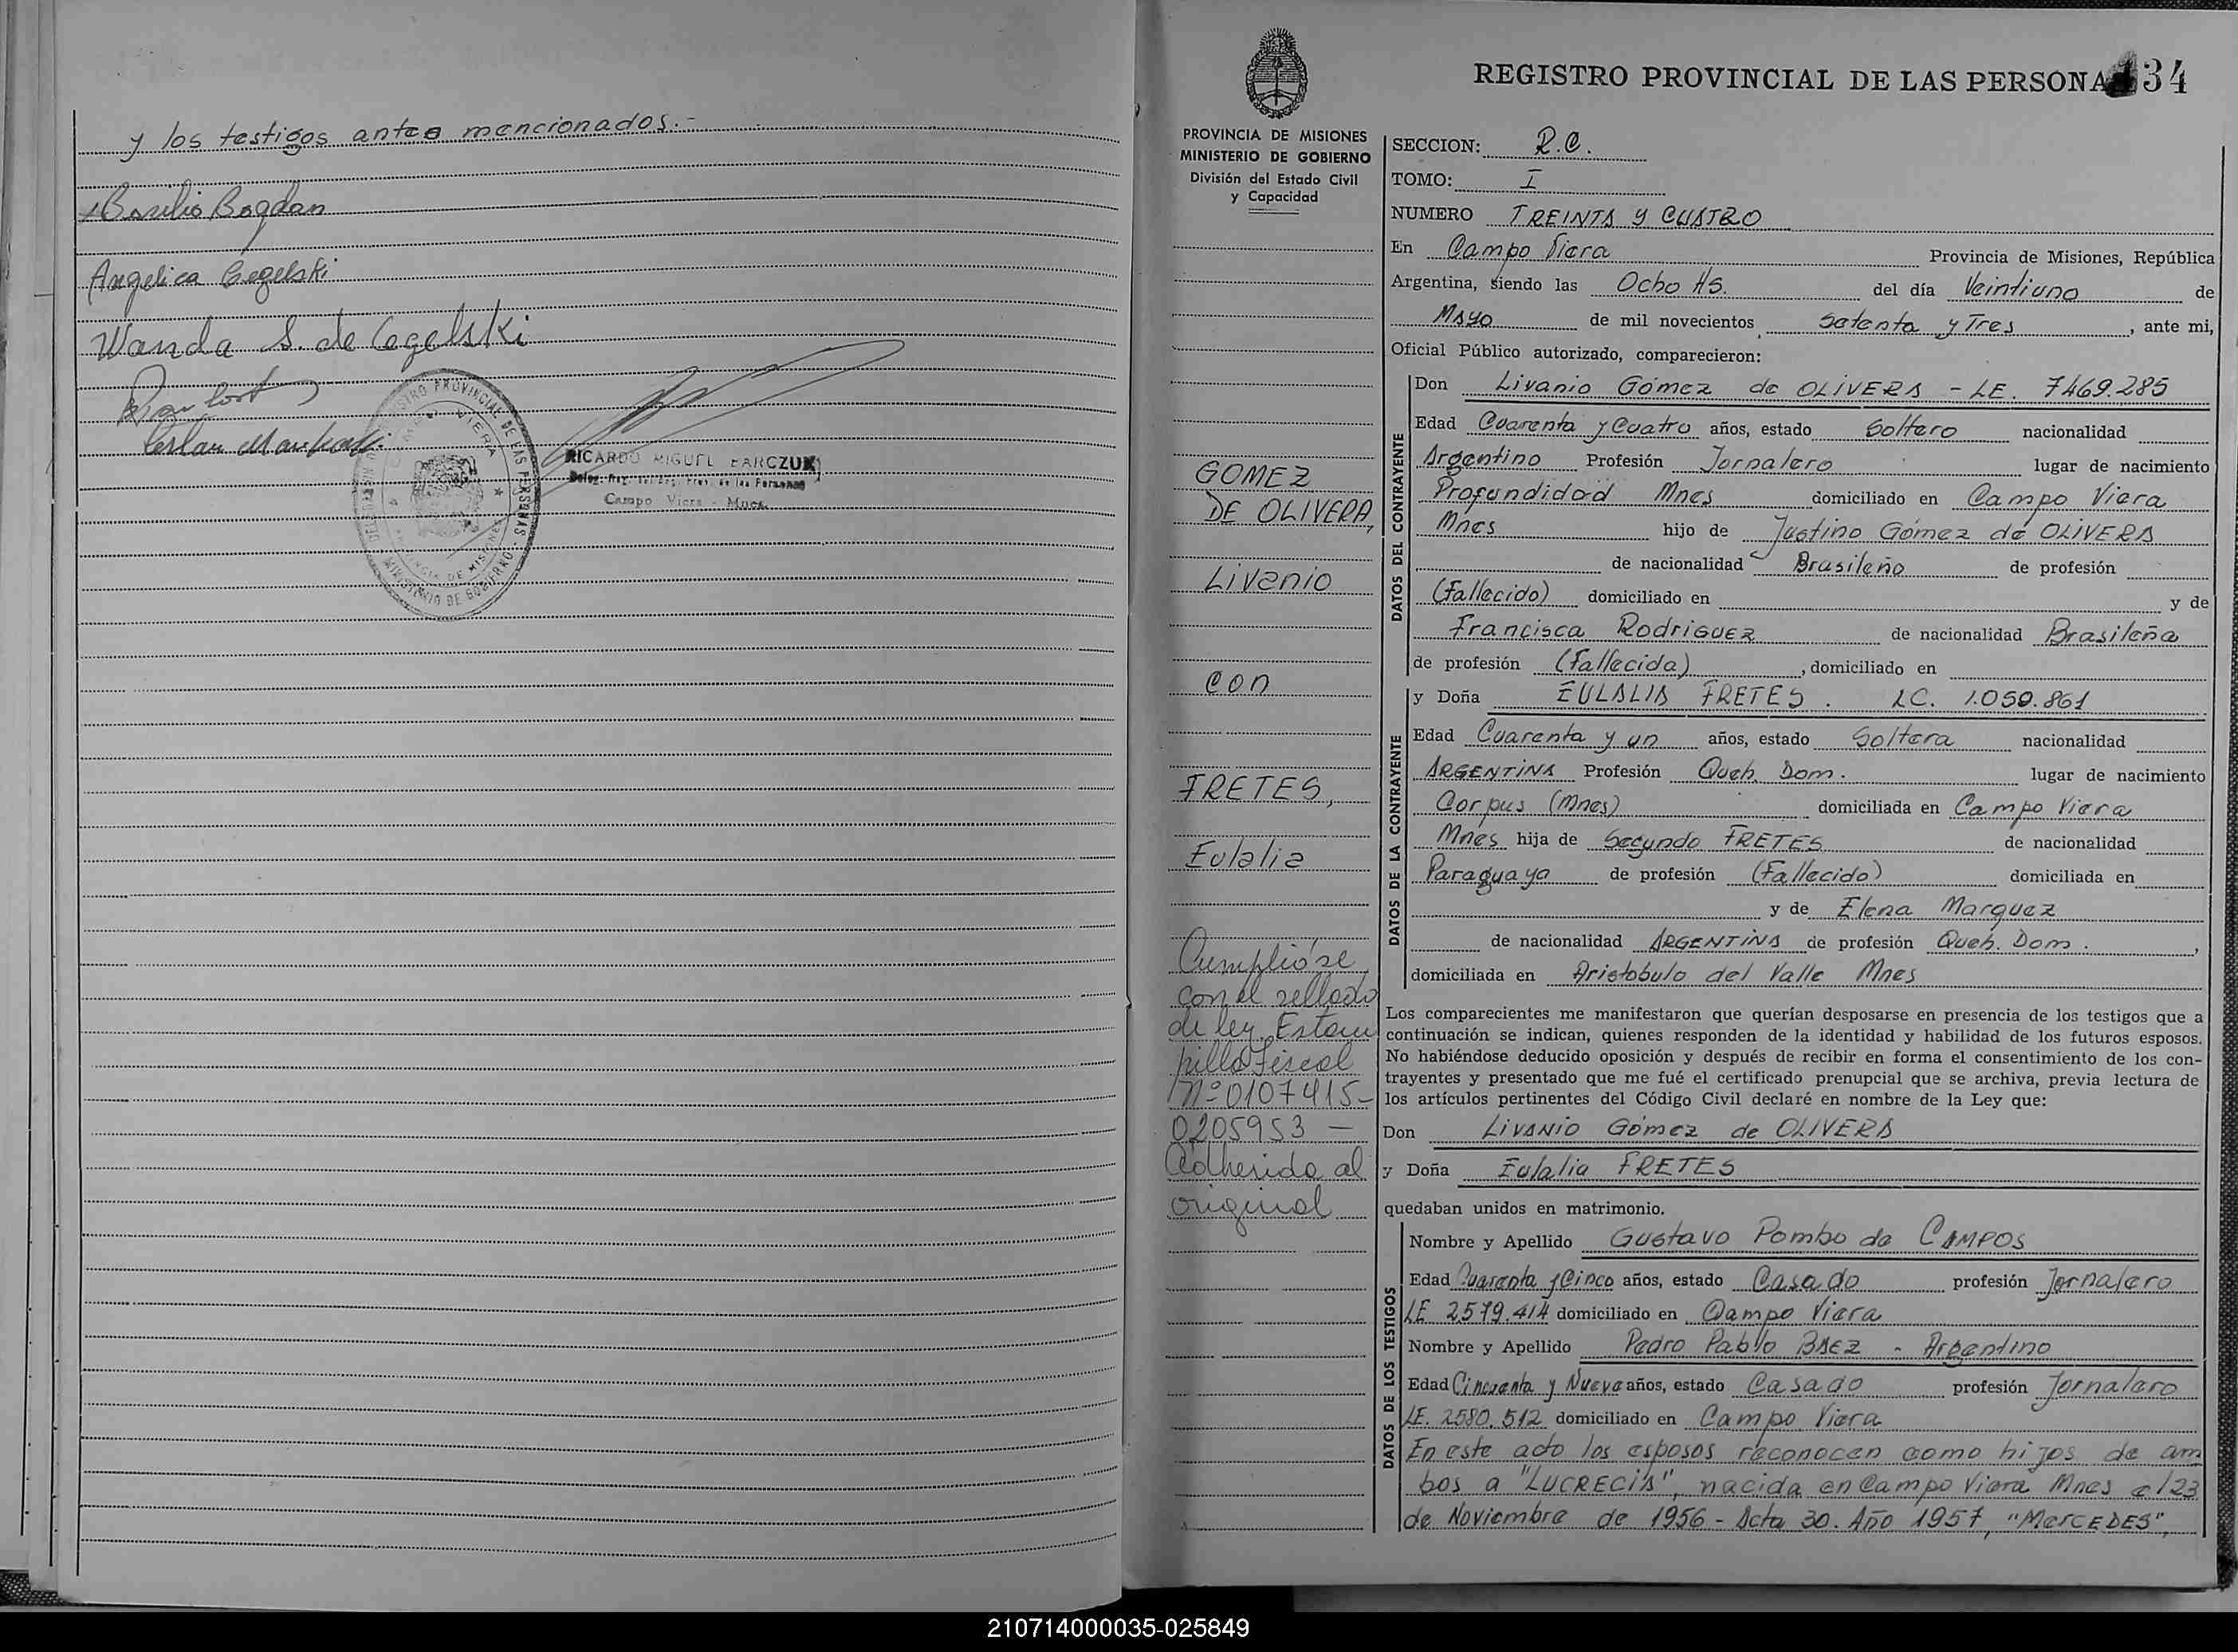 y los testigos antes mencionados.-
Basilio Bogdan
Angelica Cegelski
Wanda S. de Cegelski
REGISTRO PROVINCIAL DE LAS PERSONAS
MINISTERIO DE GOBIERNO
PROVINCIA DE MISIONES
RICARDO MIGUEL BARCZUK
Campo Viera - Mnes.
REGISTRO PROVINCIAL DE LAS PERSONA 34
PROVINCIA DE MISIONES
MINISTERIO DE GOBIERNO
División del Estado Civil
y Capacidad
GOMEZ
DE OLIVERA,
Livanio
con
FRETES,
Eulalia
Cumplióse
con el sellado
de ley. Estam
pilla Fiscal
Nº 0107415-
0205953 —
Adherida al
original
SECCION: R.C.
TOMO: I
NUMERO TREINTA Y CUATRO
En Campo Viera Provincia de Misiones, República
Argentina, siendo las Ocho Hs. del día Veintiuno de
Mayo de mil novecientos Setenta y Tres, ante mi,
Oficial Público autorizado, comparecieron:
DATOS DEL CONTRAYENTE
Don Livanio Gómez de OLIVERA - LE. 7469.285
Edad Cuarenta y Cuatro años, estado Soltero nacionalidad
Argentino Profesión Jornalero lugar de nacimiento
Profundidad Mnes domiciliado en Campo Viera
Mnes hijo de Justino Gómez de OLIVERA
de nacionalidad Brasileño de profesión
(Fallecido) domiciliado en y de
Francisca RodriGUEZ de nacionalidad Brasileña
de profesión (Fallecida), domiciliado en
DATOS DE LA CONTRAYENTE
y Doña EULALIA FRETES. LC. 1.050.861
Edad Cuarenta y un años, estado Soltera nacionalidad
ARGENTINA Profesión Queh. Dom. lugar de nacimiento
Corpus (Mnes) domiciliada en Campo Viera
Mnes hija de Segundo FRETES de nacionalidad
Paraguaya de profesión (Fallecido) domiciliada en
y de Elena Marquez
de nacionalidad ARGENTINA de profesión Queh. Dom.,
domiciliada en Aristobulo del Valle Mnes
Los comparecientes me manifestaron que querían desposarse en presencia de los testigos que a
continuación se indican, quienes responden de la identidad y habilidad de los futuros esposos.
No habiéndose deducido oposición y después de recibir en forma el consentimiento de los con-
trayentes y presentado que me fué el certificado prenupcial que se archiva, previa lectura de
los artículos pertinentes del Código Civil declaré en nombre de la Ley que:
Don LiVANIO Gómez de OLIVERA
y Doña Eulalia FRETES
quedaban unidos en matrimonio.
DATOS DE LOS TESTIGOS
Nombre y Apellido Gustavo Pombo de CAMPOS
Edad Cuarenta y Cinco años, estado Casado profesión Jornalero
LE 2579.414 domiciliado en Campo Viera
Nombre y Apellido Pedro Pablo BAEZ - Argentino
Edad Cincuenta y Nueve años, estado Casado profesión Jornalero
LE. 2580.512 domiciliado en Campo Viera
En este acto los esposos reconocen como hijos de am
bos a "LUCRECIA", nacida en Campo Viera Mnes el 23
de Noviembre de 1956 - Acta 30. Año 1957, "MercEDES",
210714000035-025849